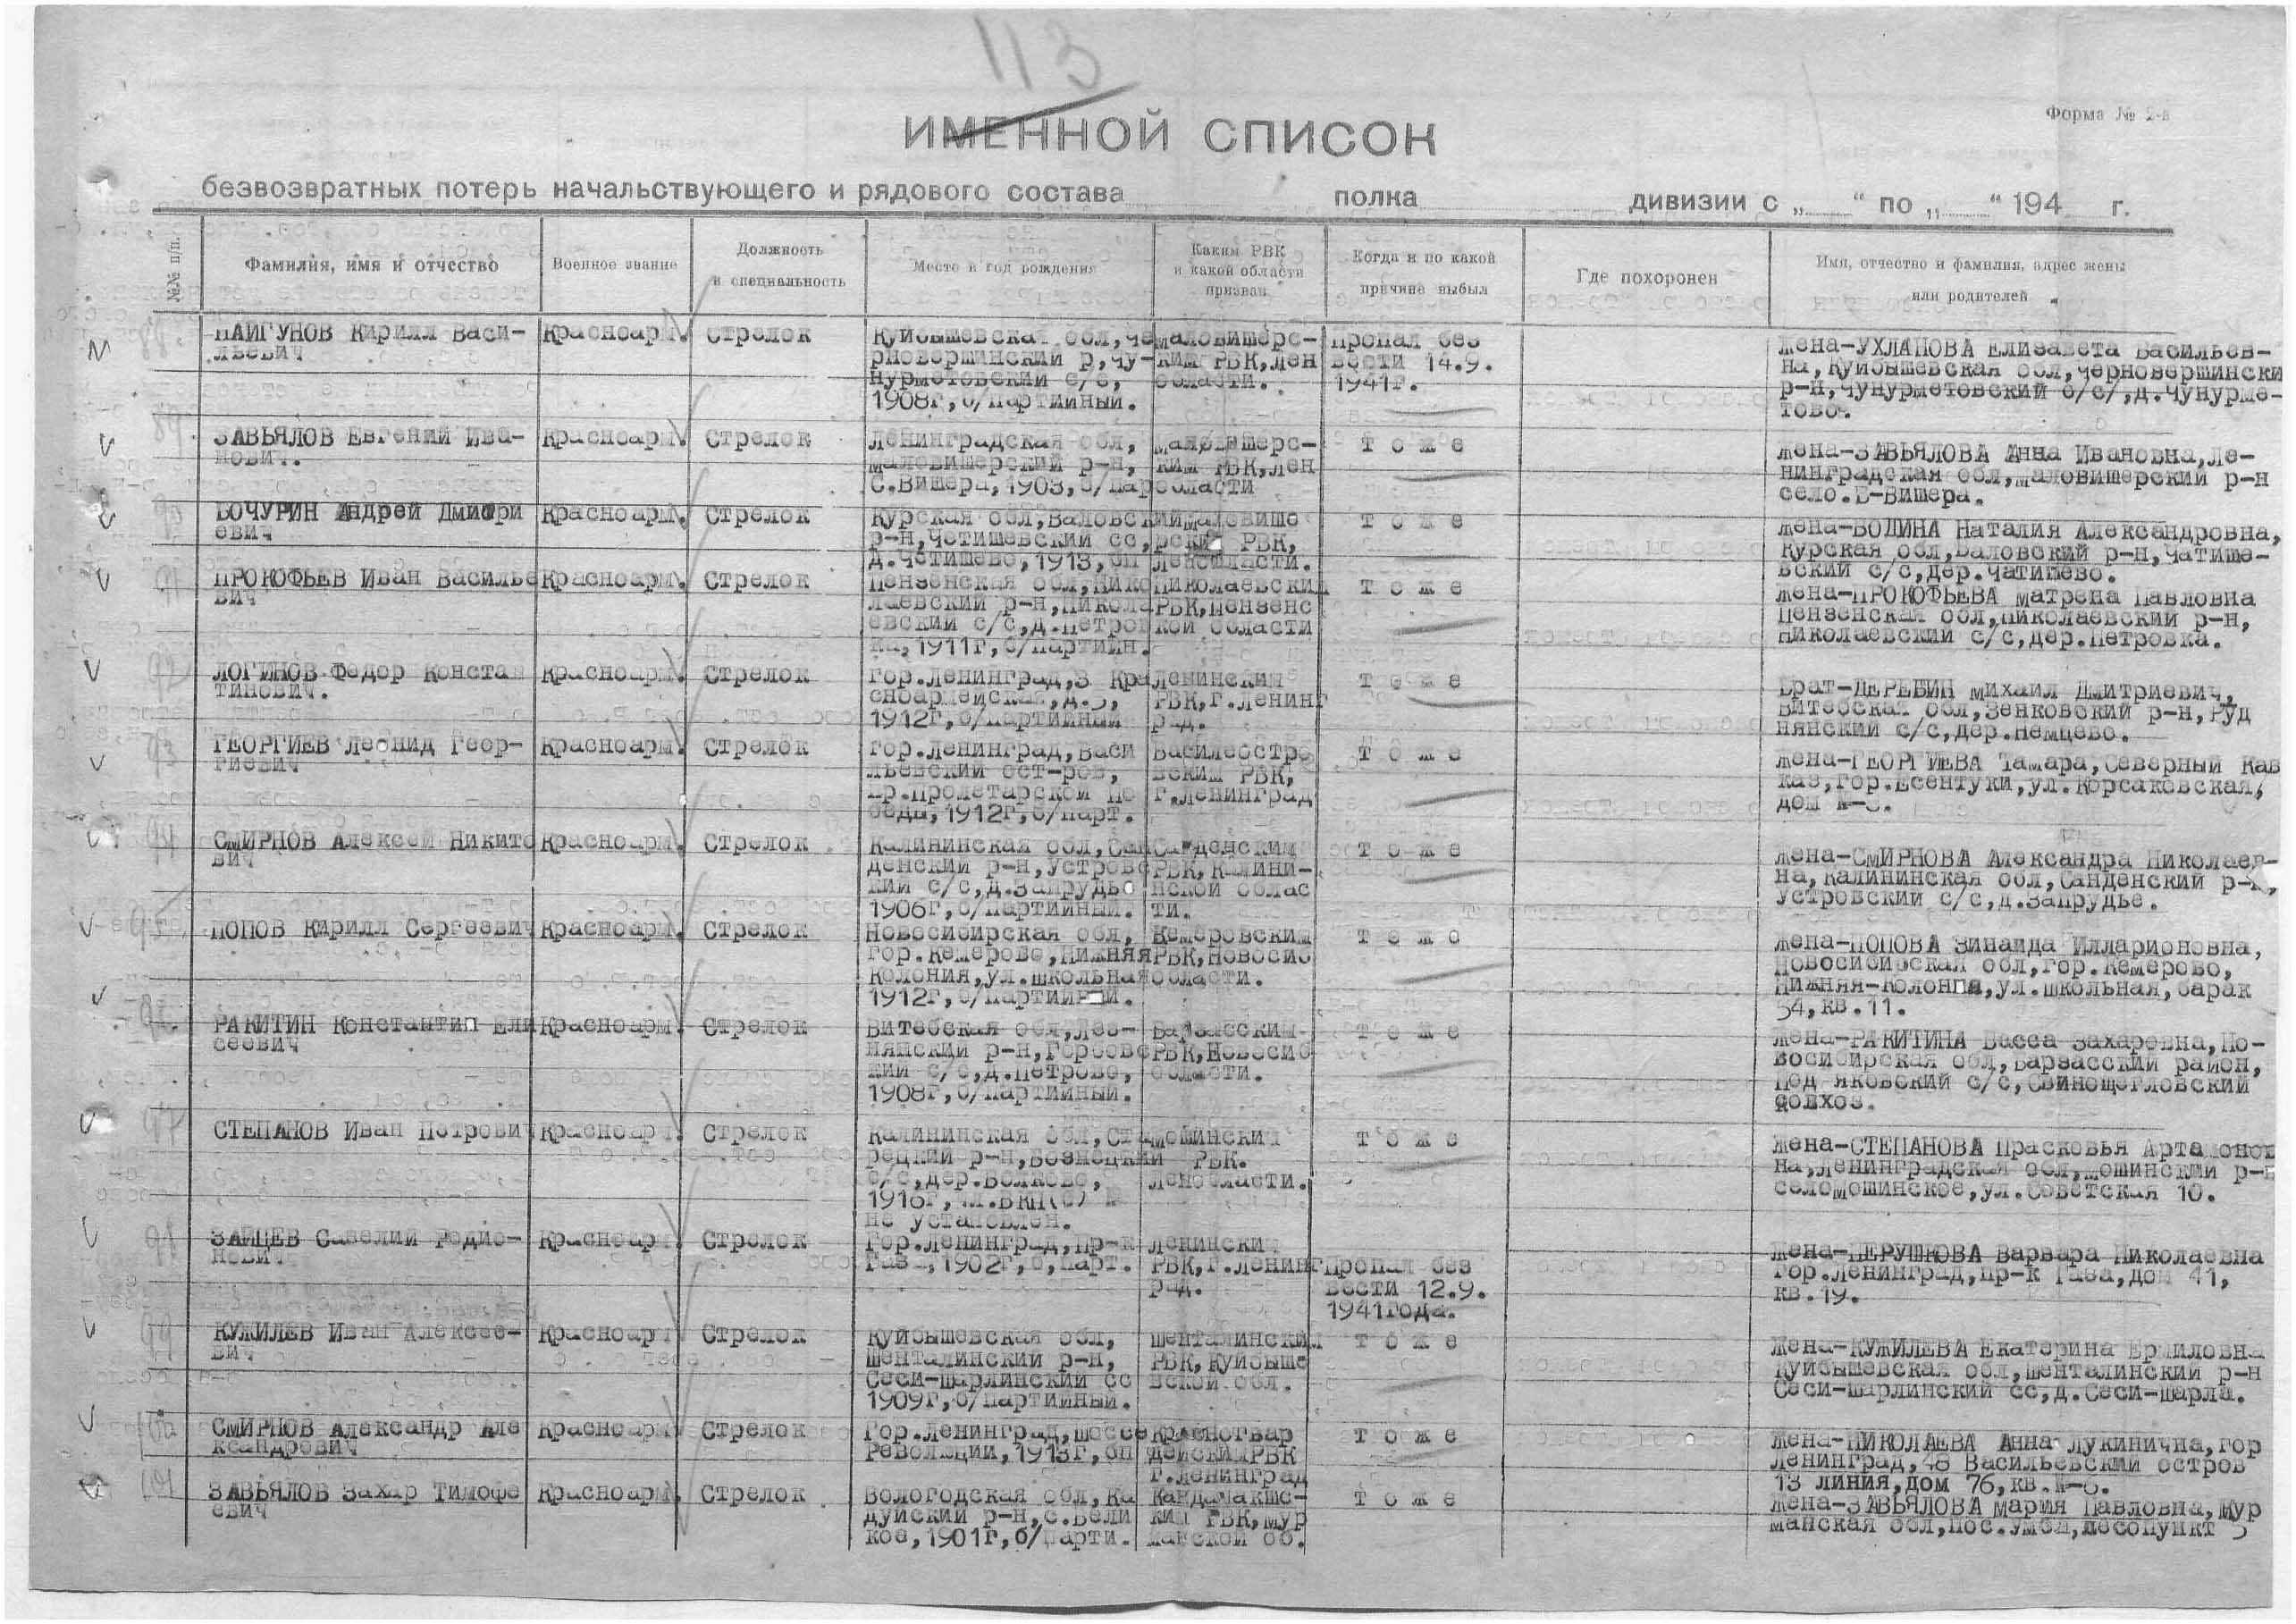 113
Форма № 2-в
ИМЕННОЙ СПИСОК
безвозвратных потерь начальствующего и рядового состава полка дивизии с „ “ по „ “ 194 г.
№№ п/п.
Фамилия, имя и отчество
Военное звание
Должность
и специальность
Место и год рождения
Каким РВК
и какой области
призван
Когда и по какой
причине выбыл
Где похоронен
Имя, отчество и фамилия, адрес жены
или родителей
НАЙГУНОВ Кирилл Васи-
льевич
Красноарм.
Стрелок
Куйбышевская обл,че
рновершинский р,чу-
нурметовский с/с,
1908г,б/партийный.
маловишерс-
ким РВК,лен
области.
Пропал без
вести 14.9.
1941г.
жена-УХЛАНОВА Елизавета Васильев-
на,Куйбышевская обл,черновершински
р-н,чунурметовский с/с/,д.чунурме-
тово.
89
ЗАВЬЯЛОВ Евгений Ива-
нович.
Красноарм.
Стрелок
Ленинградская обл,
маловишерский р-н,
С.Вишера,1903,б/пар
маловишерс-
ким РВК,лен
области
т о ж е
жена-ЗАВЬЯЛОВА Анна Ивановна,ле-
нинградская обл,маловишерский р-н
село.Б-Вишера.
90
БОЧУРИН Андрей Дмитри
евич
Красноарм.
Стрелок
Курская обл,Валовский
р-н,Четишевский сс,
д.Четишево,1913,бп
маловише
рским РВК,
ленобласти.
т о ж е
жена-ВОДИНА Наталия Александровна,
Курская обл,Валовский р-н,чатише-
вский с/с,дер.чатишево.
91
ПРОКОФЬЕВ Иван Василье
вич
Красноарм.
Стрелок
Пензенская обл,Нико
лаевский р-н,Никола
евский с/с,д.Петров
ка,1911г,б/партийн.
Николаевским
РВК,Пензенс
кой области
т о ж е
жена-ПРОКОФЬЕВА матрена Павловна
Пензенская обл,Николаевский р-н,
Николаевский с/с,дер.Петровка.
92
ЛОГИНОВ Федор Констан
тинович.
Красноарм.
Стрелок
Гор.Ленинград,3 Кра
сноармейская,д.5,
1912г,б/партийный
Ленинским
РВК,г.Ленинг
рад.
т о ж е
Брат-ДЕРЕБИН михаил Дмитриевич,
Витебская обл,Зенковский р-н,Руд
нянский с/с,дер.Немцево.
93
ГЕОРГИЕВ Леонид Геор-
гиевич
Красноарм.
Стрелок
Гор.Ленинград,Васи
льевский ост-ров,
пр.Пролетарской По
беды,1912г,б/парт.
Василеостро
вским РВК,
г.Ленинград
т о ж е
жена-ГЕОРГИЕВА Тамара,Северный Кав
каз,гор.Есентуки,ул.Корсаковская,
дом
94
СМИРНОВ Алексей Никито
вич
Красноарм.
Стрелок
Калининская обл,Сан
денский р-н,Устровс
кий с/с,д.Запрудье
1906г,б/партийный.
Санденским
РВК,Калини-
нской облас
ти.
т о ж е
жена-СМИРНОВА Александра Николаев-
на,Калининская обл,Санденский р-н,
Устровский с/с,д.Запрудье.
95
ПОПОВ Кирилл Сергеевич
Красноарм.
Стрелок
Новосибирская обл,
гор.Кемерово,Нижняя
Колония,ул.Школьная
1912г,б/партийный.
Кемеровским
РВК,Новосиб
области.
т о ж е
жена-ПОПОВА Зинаида Илларионовна,
Новосибирская обл,гор.Кемерово,
Нижняя-Колония,ул.школьная,барак
34,кв.11.
96
РАКИТИН Константин Ели
сеевич
Красноарм.
Стрелок
Витебская обл,Лез-
нянский р-н,Горбовс
кий с/с,д.Петрово,
1908г,б/партийный.
Барзасским
РВК,Новосиб
области.
т о ж е
жена-РАКИТИНА Васса Захаровна,Но-
восибирская обл,Барзасский район,
Под яковский с/с,Свинощегловский
совхоз.
97
СТЕПАНОВ Иван Петрович
Красноарм.
Стрелок
Калининская обл,Ста
рецкий р-н,Вознецкий
с/с,дер.Волково,
1916г,чл.ВКП(б)
не установлен.
мошинским
РВК.
ленобласти.
т о ж е
жена-СТЕПАНОВА Прасковья Артамонов
на,ленинградская обл,мошинский р-н
селомошинское,ул.Советская 10.
98
ЗАЙЦЕВ Савелий Родио-
нович
Красноарм.
Стрелок
Гор.Ленинград,пр-к
Газа,1902г,б,парт.
Ленинским
РВК,г.Ленинг
рад.
Пропал без
вести 12.9.
1941года.
жена-ПЕРУШКОВА Варвара Николаевна
гор.Ленинград,пр-к Газа,дом 41,
кв.19.
99
КУЖИЛЕВ Иван Алексее-
вич
Красноарм
Стрелок
Куйбышевская обл,
Шенталинский р-н,
Сеси-шарлинский сс
1909г,б/партийный.
Шенталинским
РВК,Куйбыше
вской обл.
т о ж е
жена-КУЖИЛЕВА Екатерина Ермиловна
Куйбышевская обл,Шенталинский р-н
Сеси-шарлинский сс,д.Сеси-шарла.
100
СМИРНОВ Александр Але
ксандрович
Красноарм
Стрелок
Гор.Ленинград,шоссе
Революции,1913г,бп
Красногвар
дейскимРВК
г.Ленинград
т о ж е
жена-НИКОЛАЕВА Анна Лукинична,гор
Ленинград,48 Васильевский остров
13 линия,дом 76,кв.
101
ЗАВЬЯЛОВ Захар Тимофе
евич
Красноарм.
Стрелок
Вологодская обл,Ка
дуйский р-н,с.Вели
кое,1901г,б/парти.
Кандалакшс-
ким РВК,мур
манской об.
т о ж е
жена-ЗАВЬЯЛОВА мария Павловна,мур
манская обл,пос.Умба,лесопункт 3